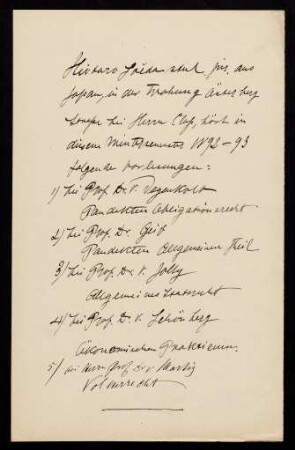 Hirotaro Hoida stud. jur. aus
Japan, in der Wohnung Österberg
strasse bei Herrn Clos, hört in
diesem Wintersemester 1892-93
folgende Vorlesungen:
1) bei Prof. Dr. v. Degenkolb
Pandekten Obligationenrecht
2) bei Prof. Dr. Geib
Pandekten Allgemeinen Theil
3) bei Prof. Dr. v. Jolly
Allgemeines Staatsrecht
4) bei Prof. Dr. v. Schönberg
Ökonomischen Praktikum.
5) bei Herrn Prof. Dr. v. Martitz
Völkerrecht